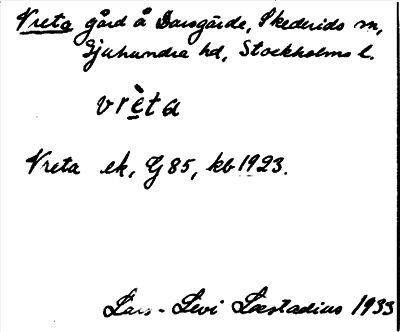 Vreta gård å Darsgärde, Skederids sn,
Sjuhundra hd, Stockholms l.
vrèta
Vreta ek, G 85, kb 1923.
Lars-Levi Læstadius 1933